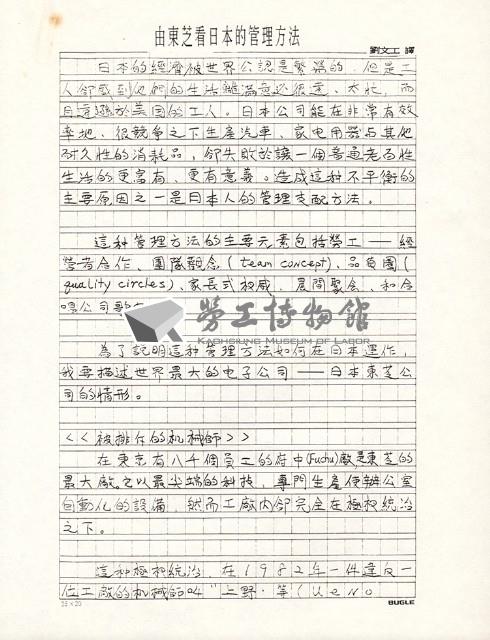 由東芝看日本的管理方法
劉文工 譯
日本的經濟被世界公認是繁榮的,但是工
人卻感到他們的生活離滿意还很遠、太忙,而
且遠遜於美國的工人。日本公司能在非常有效
率地、很競争之下生產汽車、家电用器与其他
耐久性的消耗品,卻失敗於讓一個普通老百性
生活的更富有、更有意義。造成這种不平衡的
主要原因之一是日本人的管理支配方法。
這种管理方法的主要元素包括勞工——經
營者合作、團隊觀念(team concept)、品質圈(
quality circles)、家長式权威、晨間聚会、和合
唱公司歌
勞工博物館
KAOHSIUNG MUSEUM OF LABOR
為了說明這种管理方法如何在日本運作,
我要描述世界最大的电子公司——日本東芝公
司的情形。
<<被排斥的机械師>>
在東京有八千個員工的府中(Fuchu)廠是東芝的
最大廠,它以最尖端的科技,專門生產使辦公室
自動化的設備,然而工廠内卻完全在極权統治
之下。
這种極权統治,在1982年一件違反一
位工廠的机械師叫“上野·等(Ueno
25×20
BUGLE